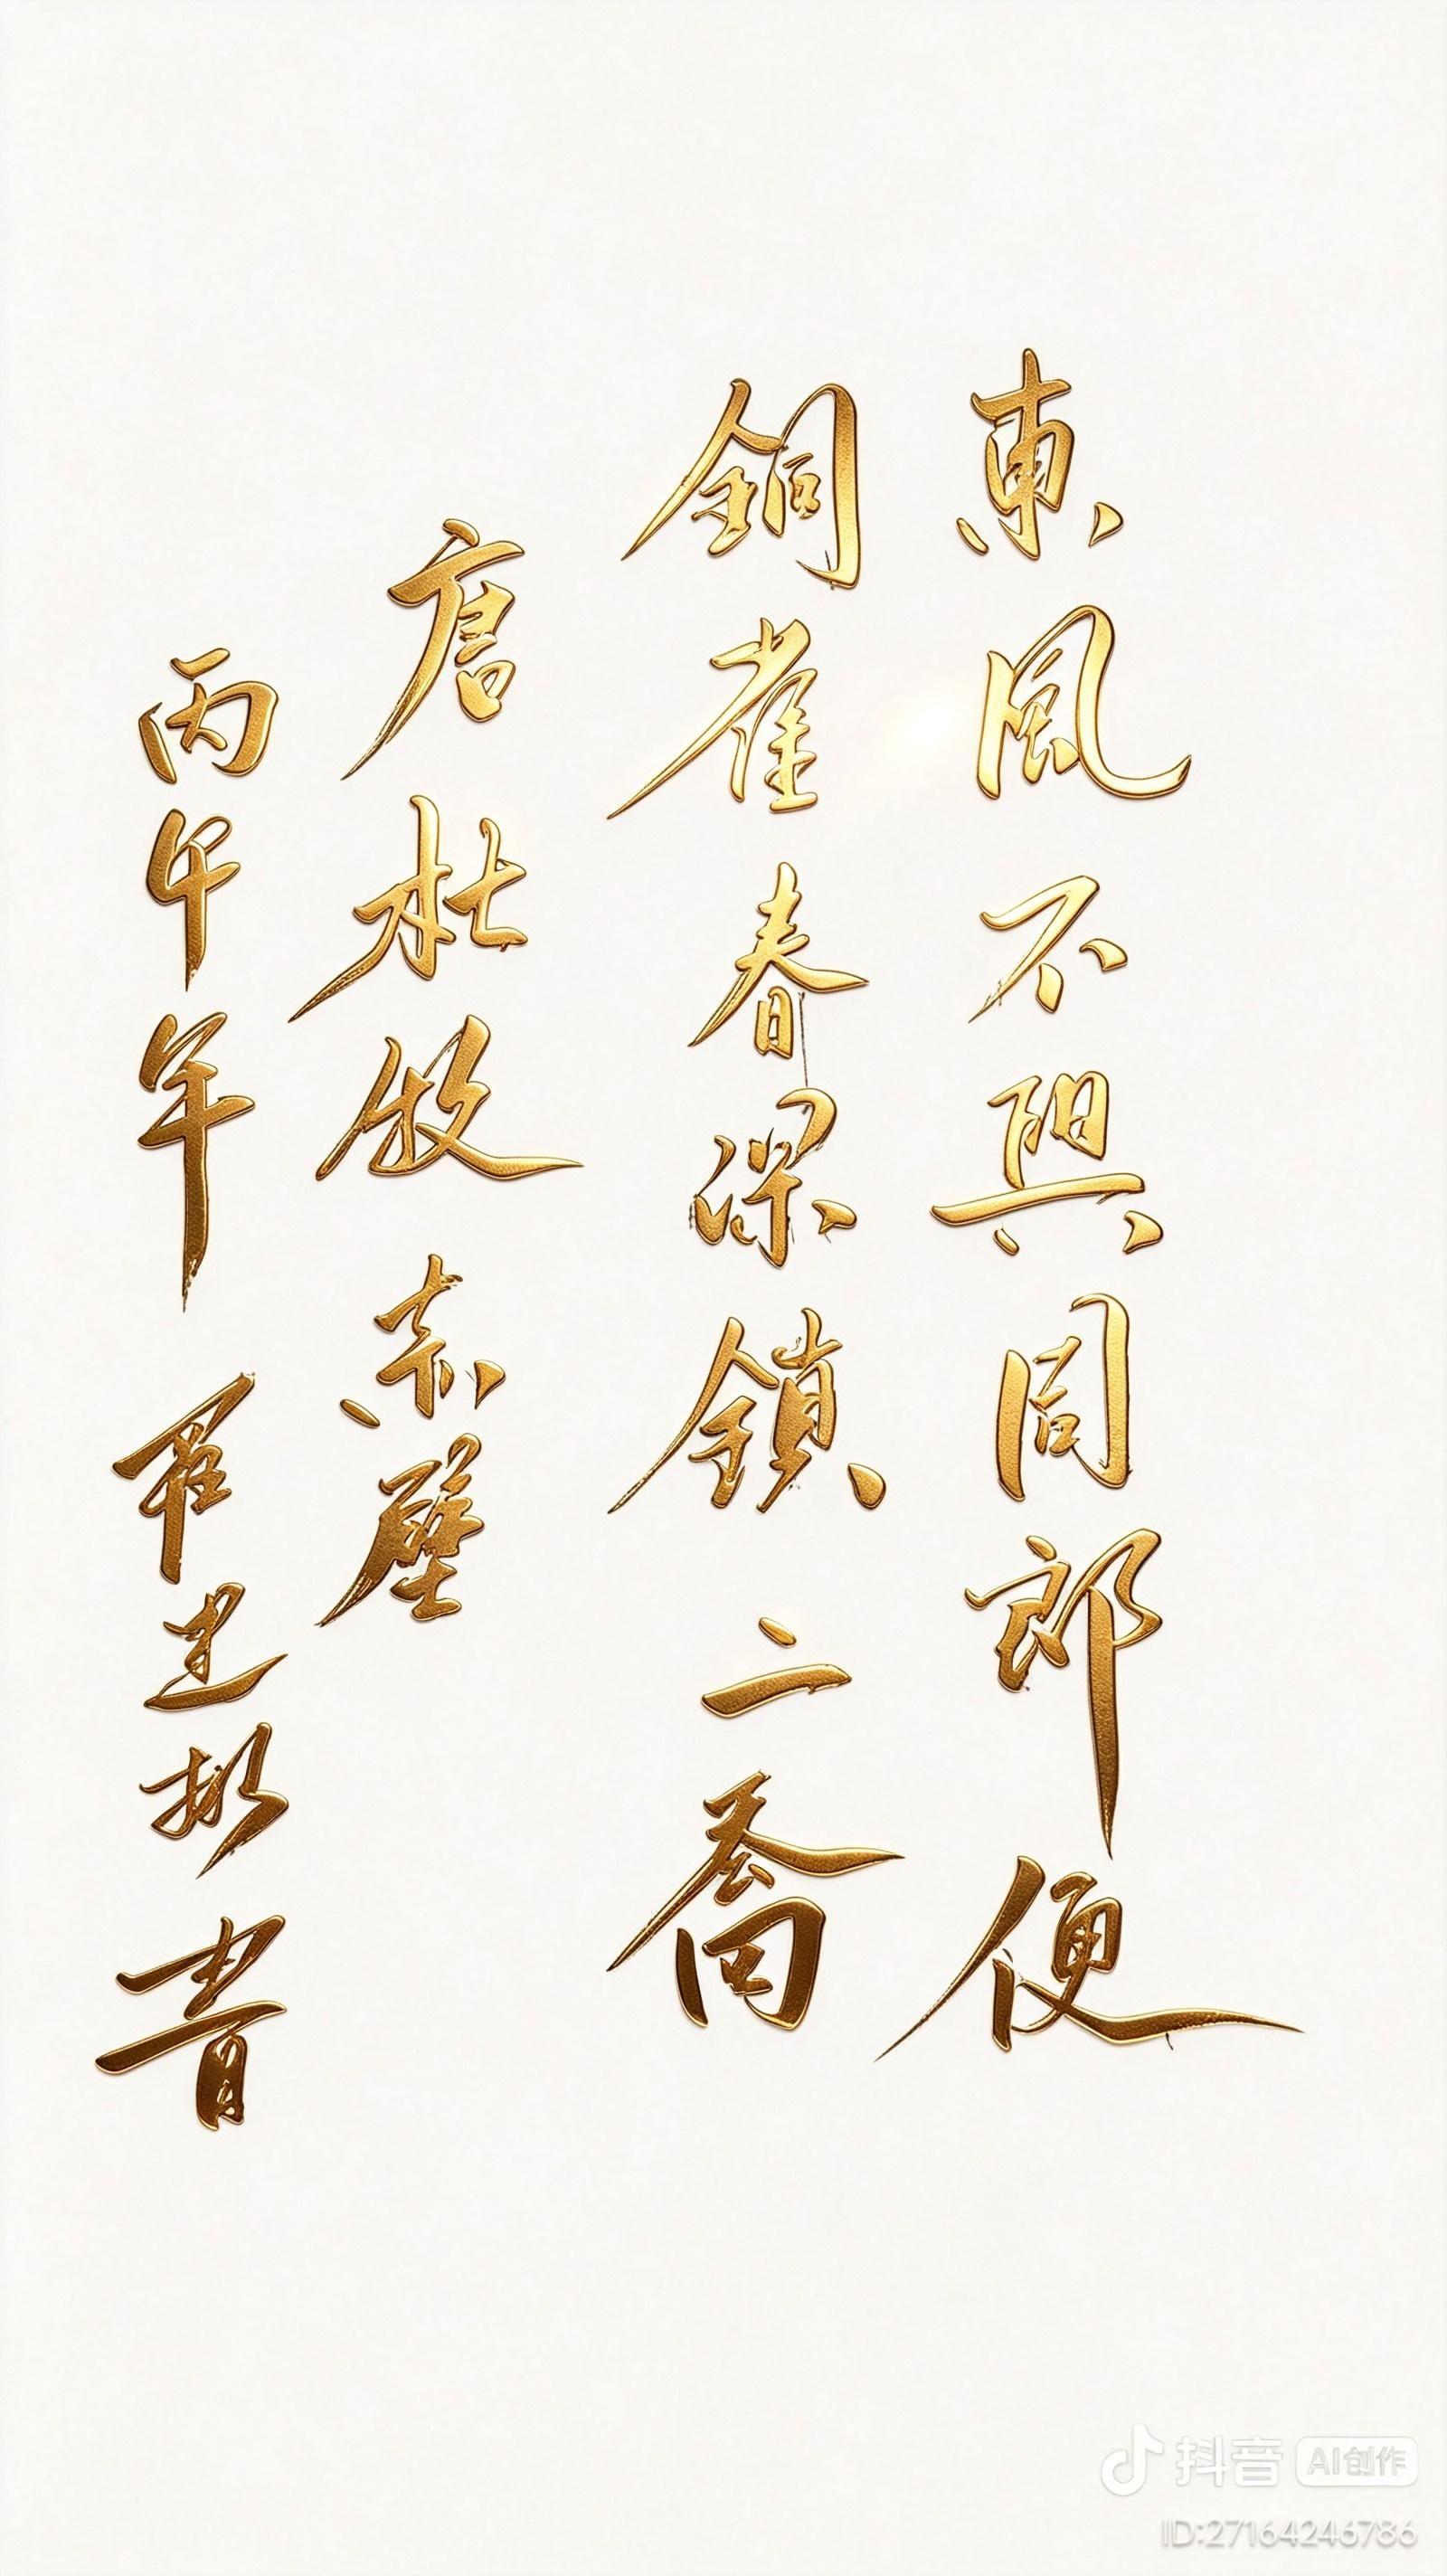 東風不與周郎便
銅雀春深鎖二喬
唐杜牧 赤壁
丙午年 羅建 書
抖音 AI创作
ID:27164246786